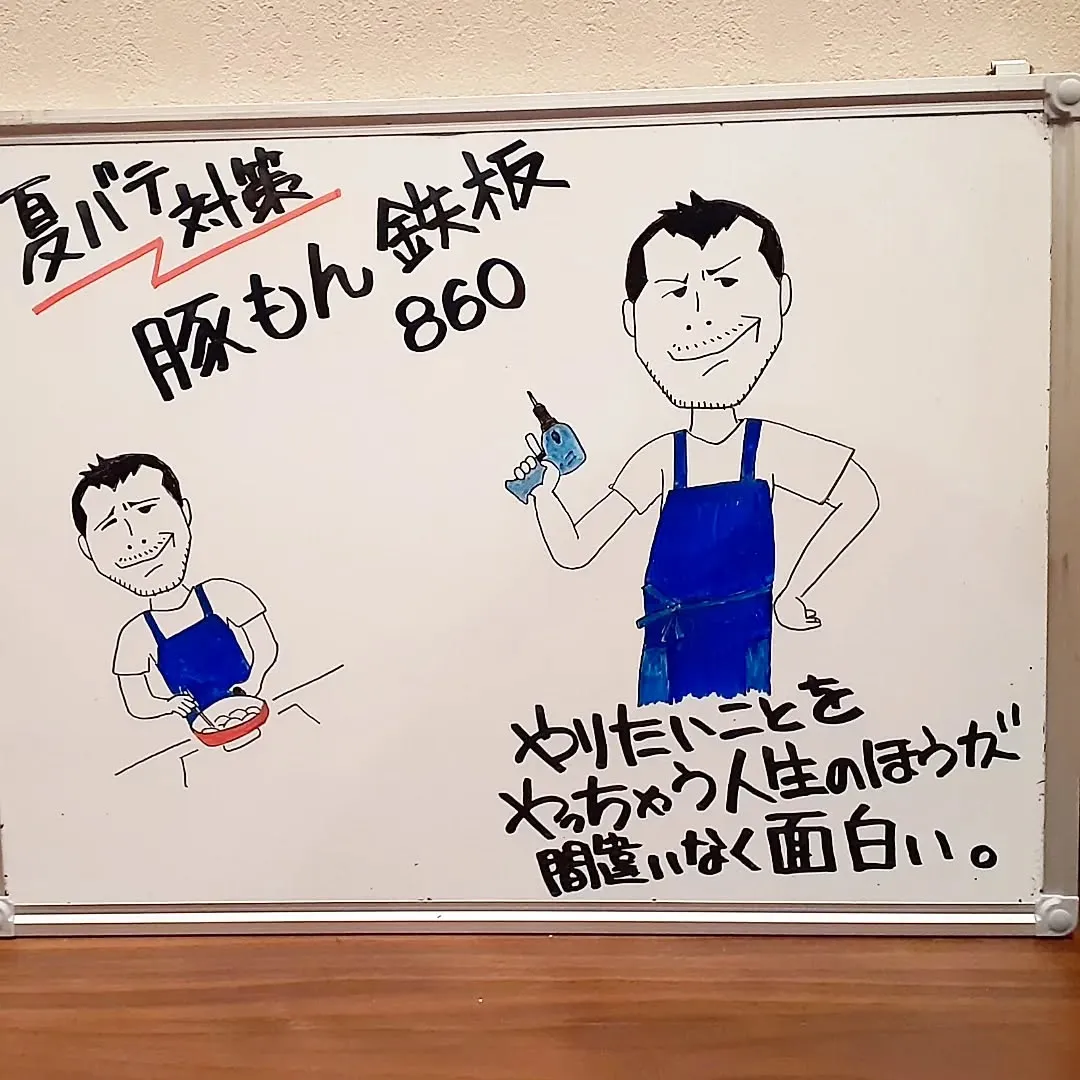 夏バテ対策
豚もん鉄板
860
やりたいことを
やっちゃう人生のほうが
間違いなく面白い。